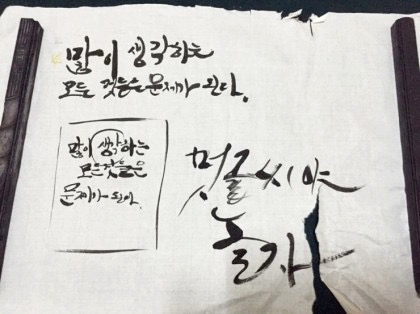 많이 생각하는
모든 것들은 문제가 된다.
많이 생각하는
모든것들은
문제가 된다.
멋글씨야
놀자